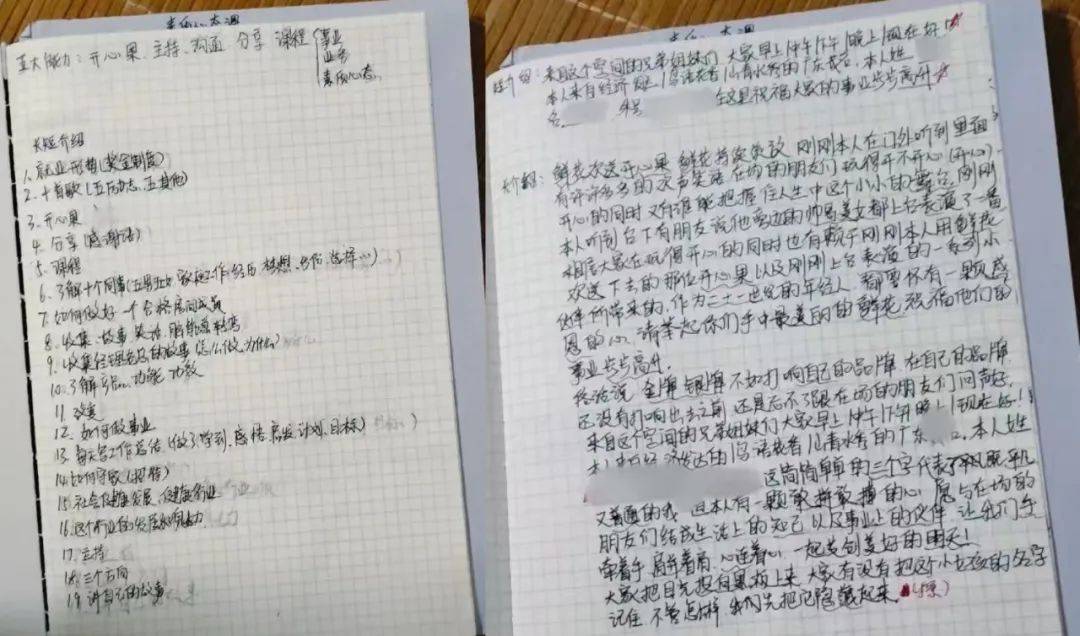 五大能力：开心果、主持、沟通 分享 课程
事业
业务
素质心态
长短介绍
1. 就业形势(奖金制度)
2. 十首歌(五励志、五其他)
3. 开心果
4. 分享(感谢话)
5. 课程
6. 了解十个同事(五男五女 家庭工作经历 梦想
7. 如何做好一个合格房间成员
8. 收集故事 笑话、脑筋急转弯
9. 收集经理老总的故事(怎么做、为什么)
10. 了解产品、功能、功效
11. 改变
12. 如何做事业
13. 每天写工作总结(做了 学到、感悟 启发 计划、目标)
14. 如何守成
15. 社会健康发展、保健行业
16. 这个行业的发展
17. 主持
18. 三个方向
19. 讲自己的故事
来自这个空间的兄弟姐妹们 大家早上/中午/下午/晚上/现在好！
本人来自经济发达/鸟语花香/山青水秀的广东 本人姓
名 在这里祝福大家的事业步步高升
鲜花欢送开心果 鲜花 刚刚本人在门外听到里面
有许许多多的欢声笑语 在场的朋友们玩得开不开心(开心)
开心的同时 又有谁能把握住人生中这个小小的舞台 刚刚
本人听到台下有朋友说他旁边的帅哥美女都上台表演了一番
相信大家在玩得开心的同时也有赖于刚刚本人用鲜花
欢送下去的那位开心果以及刚刚上台表演的一系列小
伙伴所带来的，作为二十一世纪的年轻人 都要怀有一颗感
恩的心 请举起你们手中最美丽的鲜花 祝福他们的
事业步步高升。
俗话说 金牌银牌不如打响自己的品牌 在自己的品牌
还没有打响出去之前 还是忘不了跟在场的朋友们问声好，
来自这个空间的兄弟姐妹们大家早上/中午/下午晚上/现在好！
本人来自经济发达的/鸟语花香/山青水秀的广东 本人姓
这简简单单的三个字代表了平凡
又普通的我 但本人有一颗敢拼敢搏的心 愿与在场的
朋友们结成生活上的知己 以及事业上的伙伴 让我们手
牵着手 肩并着肩 心连着心 一起共创美好的明天！
大家把目光投向黑板上来 大家有没有把这个小女孩的名字
记住 不管怎样 我们先把它隐藏起来